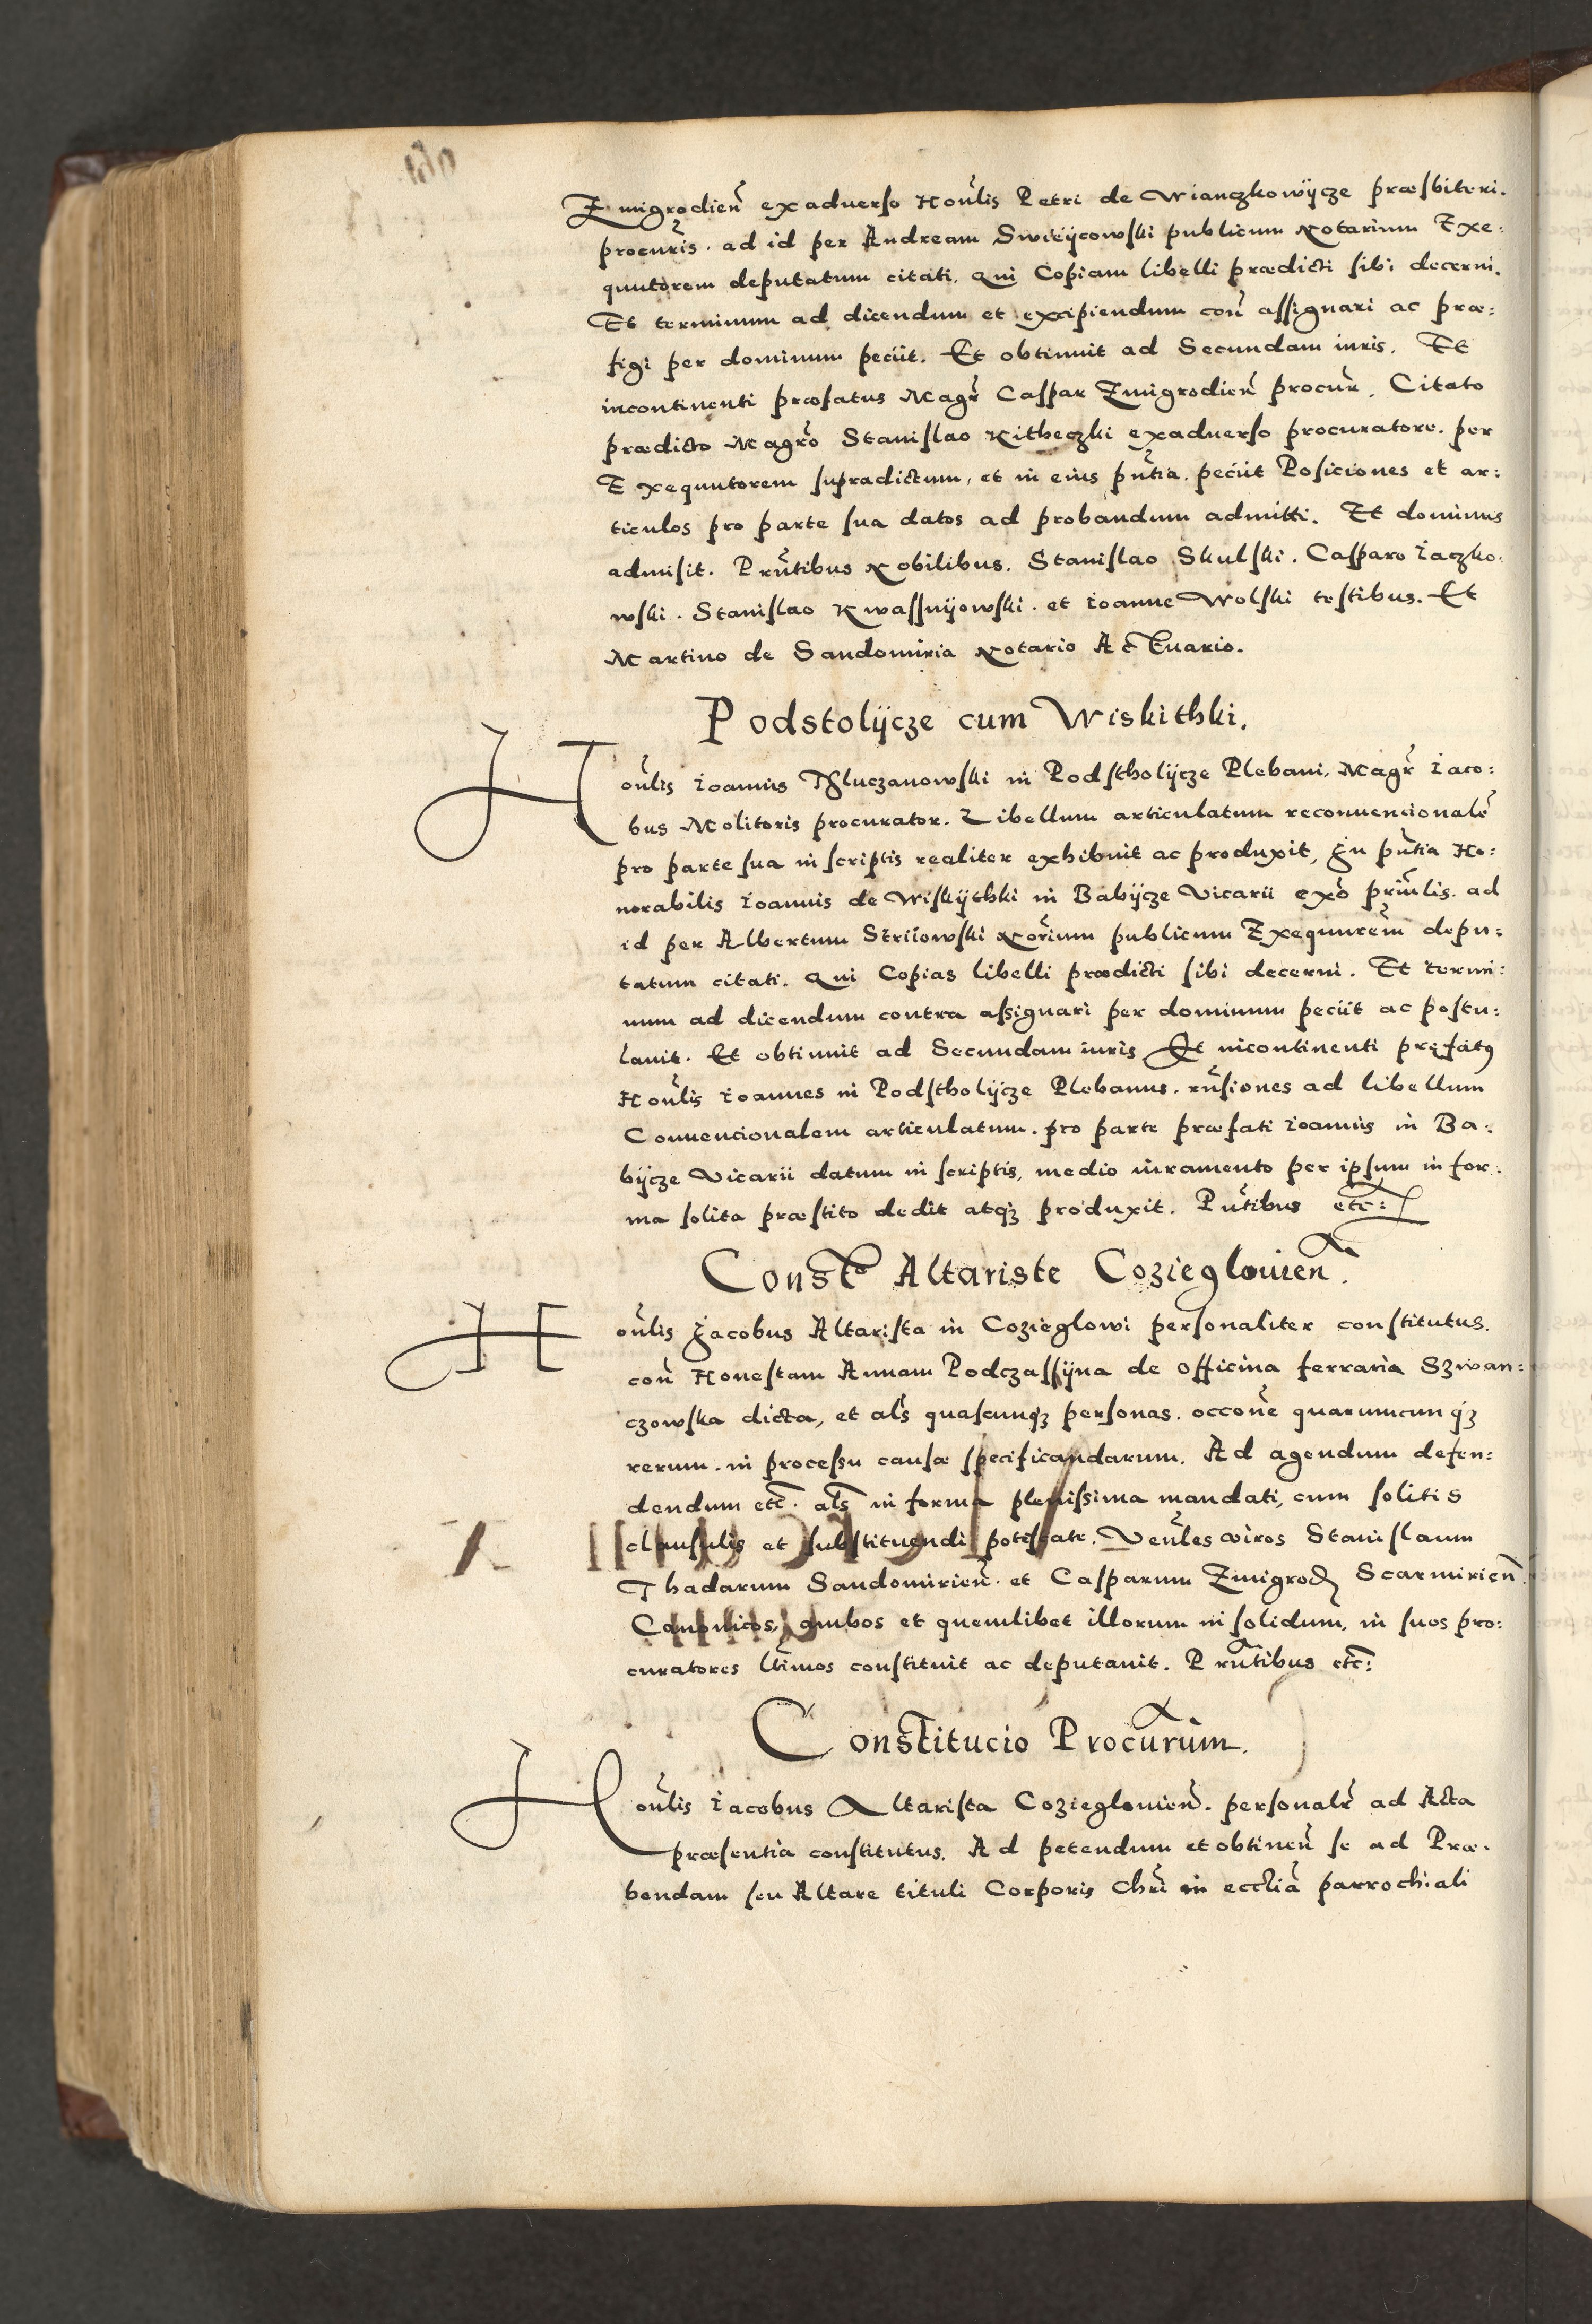 Zmigrodien̄ ex aduerso Hon̄lis Petri de Wianczkowÿcze præsbiteri.
procur̄is. ad id per Andream Swieÿcowski publicum Notarium Exe:
quutorem deputatum citati. Qui Copiam libelli prædicti sibi decerni.
Et terminum ad dicendum et excipiendum con̄ assignari ac præ:
figi per dominum peciit. Et obtinuit ad Secundam iuris. Et
incontinenti præfatus Magr̄ Caspar Zmigrodien̄ procur̄. Citato
prædicto Magr̄o Stanislao Kitheczki ex aduerso procuratore. per
Exequutorem supradictum, et in eius pn̄tia. peciit Posiciones et ar:
ticulos pro parte sua datos ad probandum admitti. Et dominus
admisit. Prn̄tibus Nobilibus. Stanislao Skulski. Casparo Iaczko:
wski. Stanislao Kwassnÿowski. et Ioanne Wolski testibus. Et
Martino de Sandomiria Notario Actuario.
Podstolÿcze cum Wiskithki.
Hon̄lis Ioannis Thluczanowski in Podstholÿcze Plebani. Magr̄ Iaco:
bus Molitoris procurator. Libellum articulatum reconuencionalē
pro parte sua in scriptis realiter exhibuit ac produxit, In pn̄tia Ho:
norabilis Ioannis de Wiskÿthki in Babÿcze Vicarii exō prin̄lis. ad
id per Albertum Striiowski Nor̄ium publicum Exequurem̄ depu:
tatum citati. Qui Copias libelli prædicti sibi decerni. Et termi:
num ad dicendum contra assignari per dominum peciit ac postu:
lauit. Et obtinuit ad Secundam iuris Et incontinenti pręfatꝯ
Hon̄lis Ioannes in Podstholÿcze Plebanus. rn̄siones ad libellum
Conuencionalem articulatum. pro parte præfati Ioannis in Ba:
bÿcze Vicarii datum in scriptis, medio iuramento per ipsum in for:
ma solita præstito dedit atqꝫ produxit. Pn̄tibus etc:
Constō Altariste Cozieglouien̄.
Hon̄lis Iacobus Altarista in Cozieglowi personaliter constitutus.
con̄ Honestam Annam Podczassÿna de Officina ferraria Szwan:
czowska dicta, et al̄s quascunqꝫ personas. occon̄e quarumcunqꝫ
rerum. in processu causæ specificandarum. Ad agendum defen:
dendum etc̄. al̄s in forma plenissima mandati, cum solitis
clausulis et substituendi potestate. Ven̄les viros Stanislaum
Thadarum Sandomirien̄. et Casparum Zmigrod̄ Scarmirien̄.
Canonicos, ambos et quemlibet illorum in solidum, in suos pro:
curatores ltīmos constituit ac deputauit. Prn̄tibus etc̄:
Constitucio Procurūm.
Hon̄lis Iacobus Altarista Cozieglouien̄. personalr̄ ad Acta
præsentia constitutus. Ad petendum et obtinen̄ se ad Præ:
bendam seu Altare tituli Corporis Chr̄i in eccl̄ia parrochiali